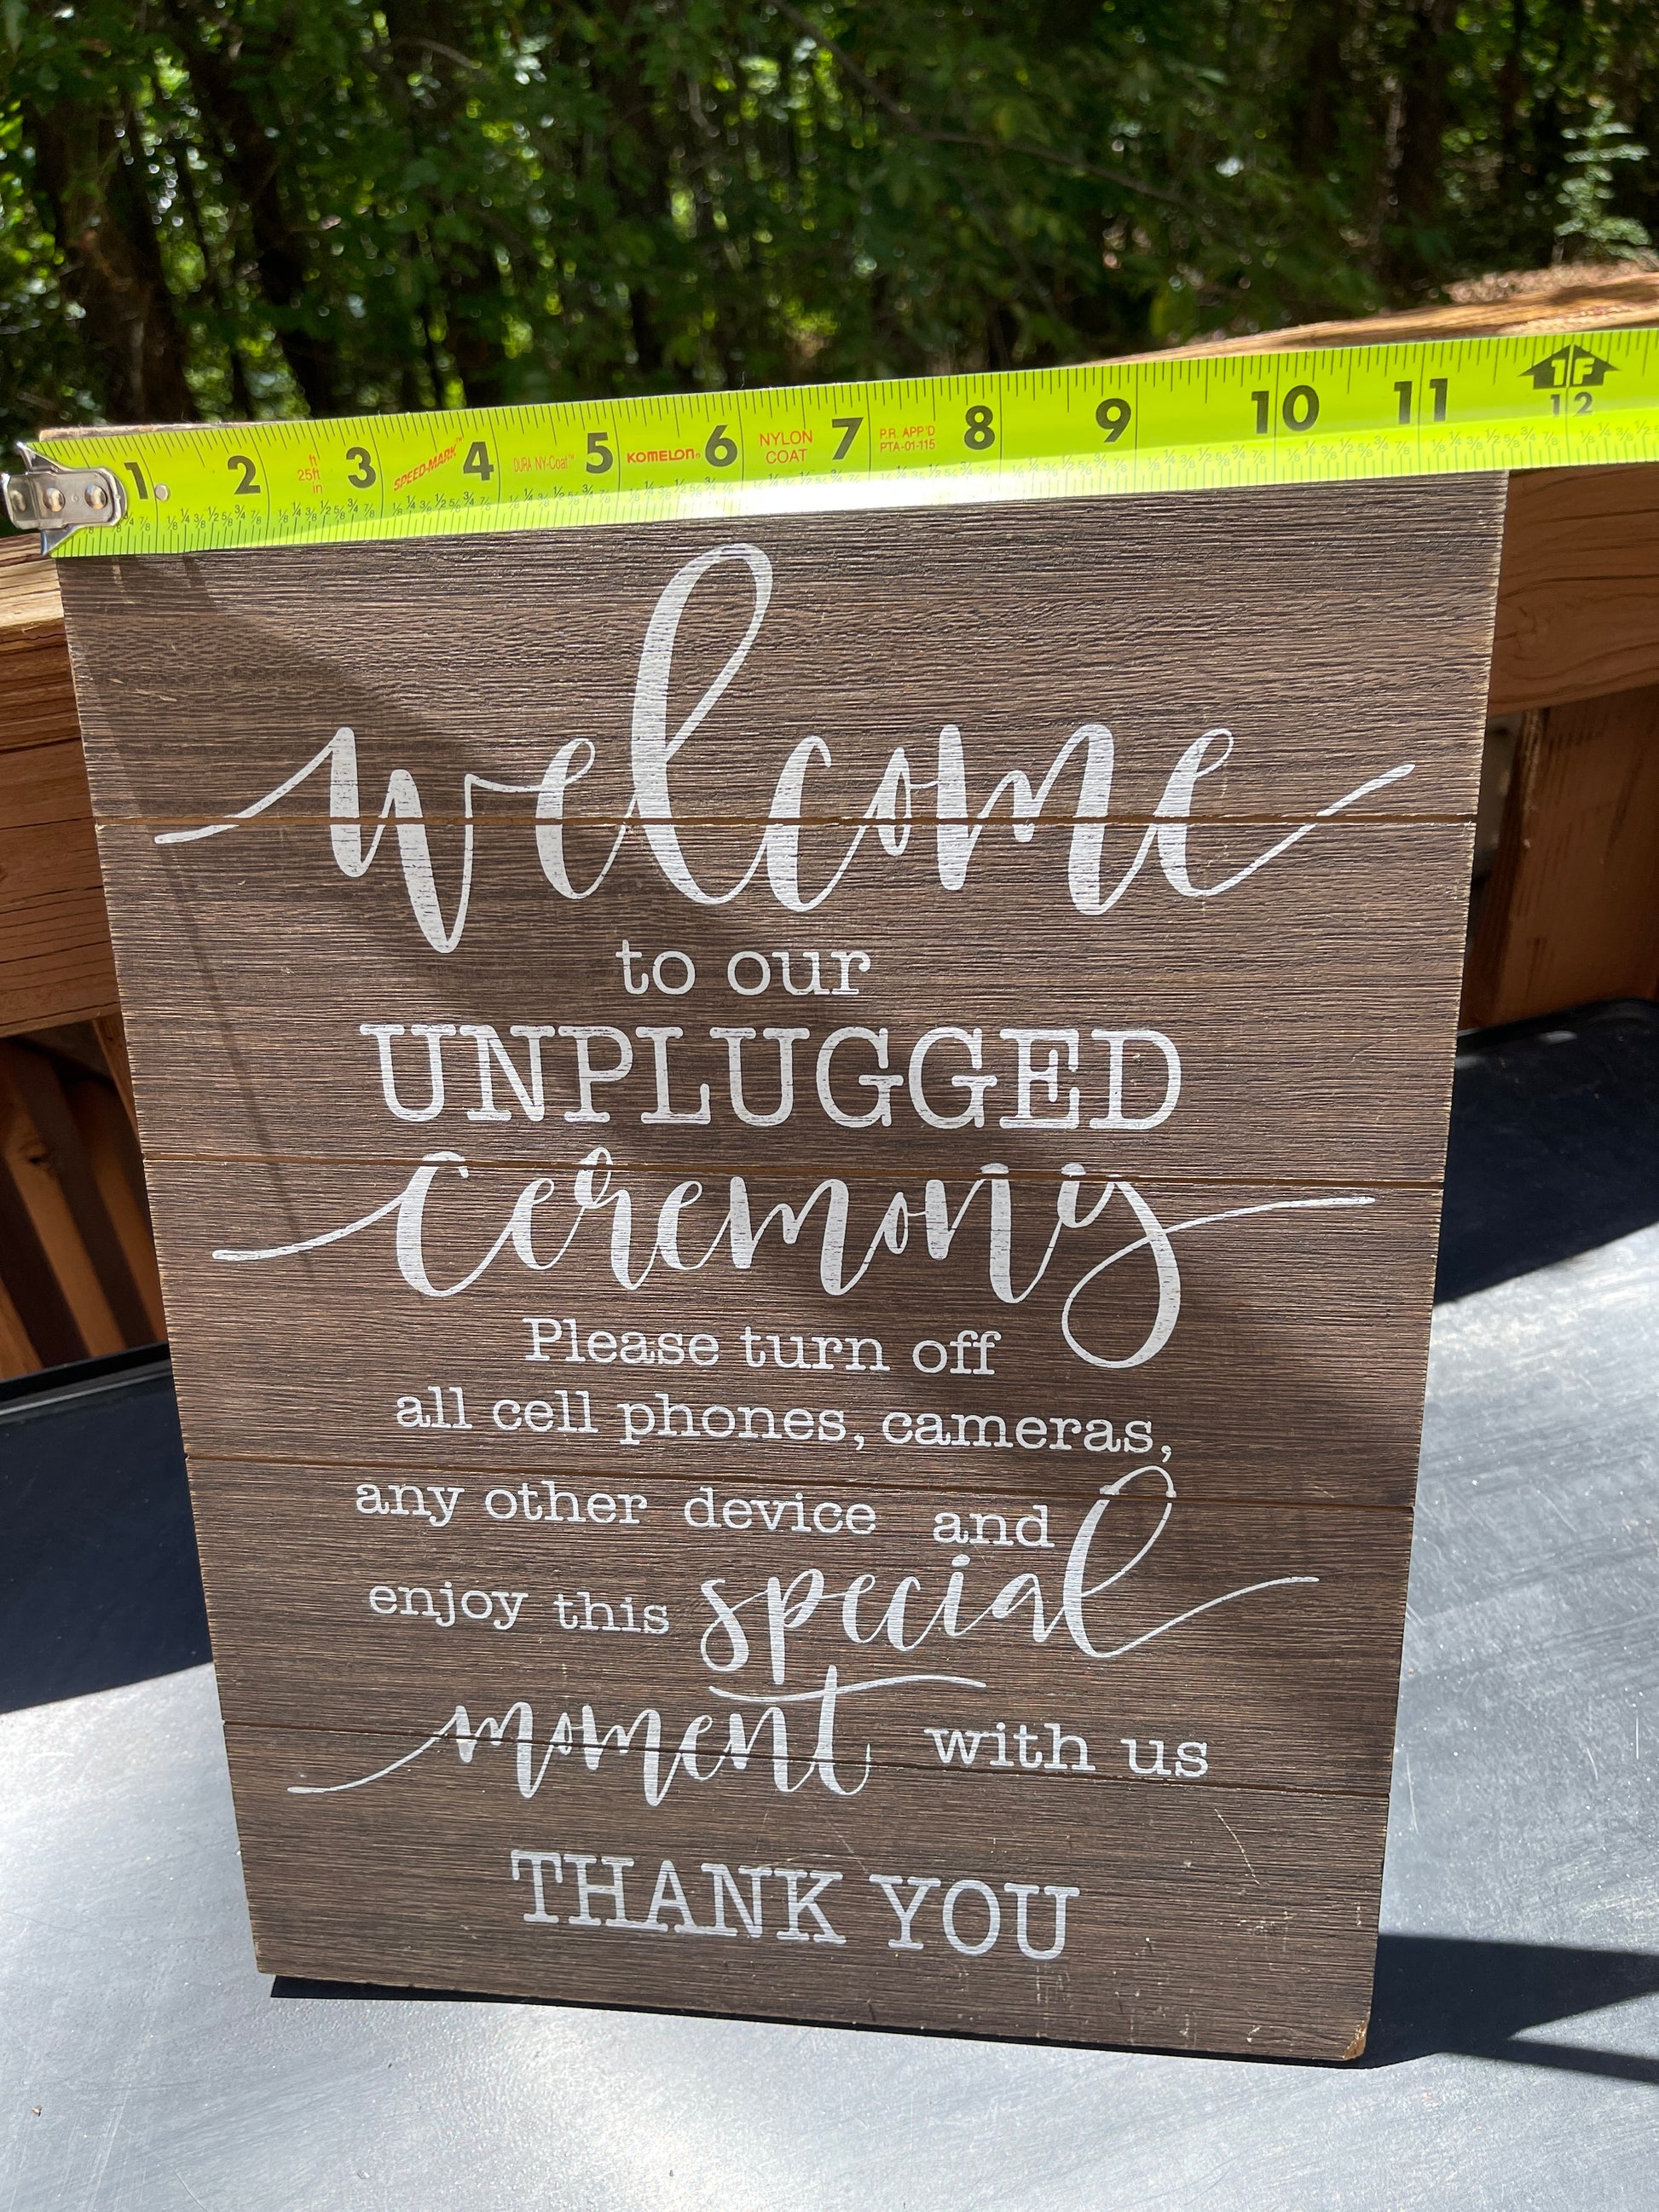 1 2 ft 25ft in 3 SPEED-MARK™ 4 DURA NY-Coat™ 5 KOMELON® 6 NYLON COAT 7 P.R. APP'D PTA-01-115 8 9 10 11 1F 12
welcome
to our
UNPLUGGED
ceremony
Please turn off
all cell phones, cameras,
any other device and
enjoy this special
moment with us
THANK YOU